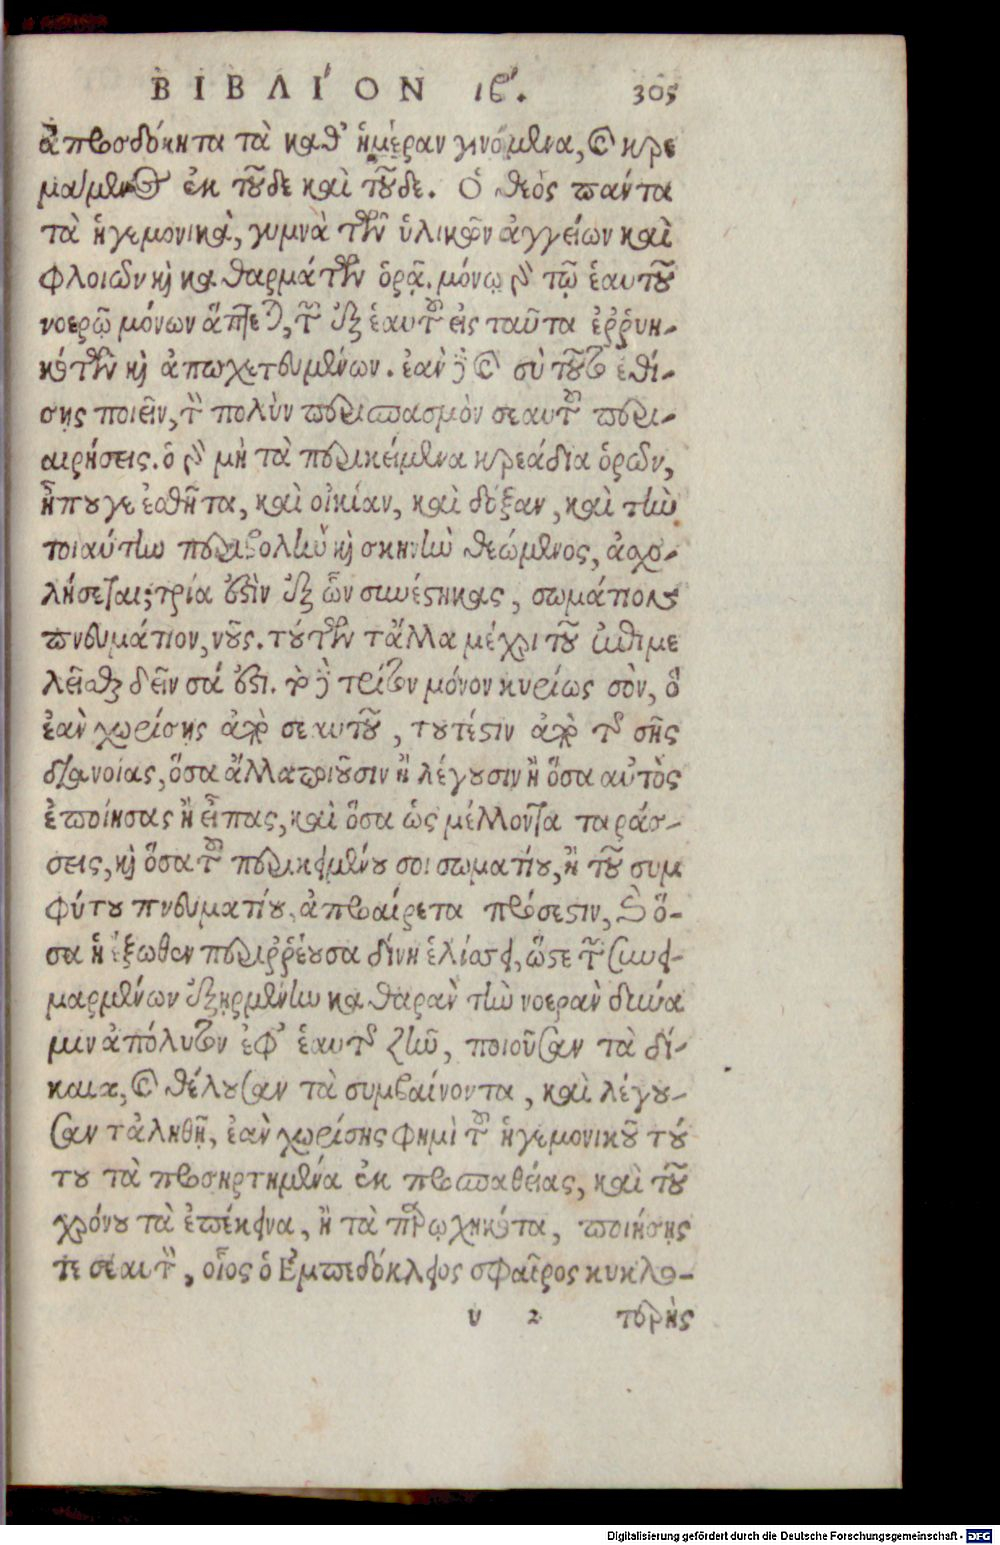 ΒΙΒΛΙ´ΟΝ ιβ´. 305
ἀπροσδόκητα τὰ καθ' ἡμέραν γινόμενα, καὶ κρε
μάμενος ἐκ τοῦδε καὶ τοῦδε. Ὁ θεὸς πάντα
τὰ ἡγεμονικὰ, γυμνὰ τῶν ὑλικῶν ἀγγείων καὶ
φλοιῶν καὶ καθαρμάτων ὁρᾷ. μόνῳ γὰρ τῷ ἑαυτοῦ
νοερῷ μόνων ἅπτεται, τῶν ἐξ ἑαυτοῦ εἰς ταῦτα ἐῤῥυη-
κότων καὶ ἀπωχετευμένων. ἐὰν δὲ καὶ σὺ τοῦτο ἐθί-
σῃς ποιεῖν, τὸν πολὺν περισπασμὸν σεαυτοῦ περι-
αιρήσεις. ὁ γὰρ μὴ τὰ περικείμενα κρεάδια ὁρῶν,
ἦπου γε ἐσθῆτα, καὶ οἰκίαν, καὶ δόξαν, καὶ τὴν
τοιαύτην περιβολὴν καὶ σκηνὴν θεώμενος, ἀσχο-
λήσεται; τρία ἐστὶν ἐξ ὧν συνέστηκας, σωμάτιον
πνευμάτιον, νοῦς. τούτων τἄλλα μέχρι τοῦ ἐπιμε
λεῖσθαι δεῖν σά ἐστι. τὸ δὲ τρίτον μόνον κυρίως σὸν, ὃ
ἐὰν χωρίσῃς ἀπὸ σεαυτοῦ, τουτέστιν ἀπὸ τῆς σῆς
διανοίας, ὅσα ἄλλα ποιοῦσιν ἢ λέγουσιν ἢ ὅσα αὐτὸς
ἐποίησας ἢ εἶπας, καὶ ὅσα ὡς μέλλοντα ταράσ-
σεις, καὶ ὅσα τοῦ περικειμένου σοι σωματίου, ἢ τοῦ συμ
φύτου πνευματίου, ἀπροαίρετα πρόσεστιν, καὶ ὅ-
σα ἡ ἔξωθεν περιῤῥέουσα δίνη ἑλίσσει, ὥστε τῶν συνει-
μαρμένων ἐξῃρμένην καθαρὰν τὴν νοερὰν δύνα
μιν ἀπόλυτον ἐφ' ἑαυτῆς ζῆν, ποιοῦσαν τὰ δί-
καια, καὶ θέλουσαν τὰ συμβαίνοντα, καὶ λέγου-
σαν τἀληθῆ, ἐὰν χωρίσῃς φημὶ τοῦ ἡγεμονικοῦ τού
του τὰ προσηρτημένα ἐκ προσπαθείας, καὶ τοῦ
χρόνου τὰ ἐπέκεινα, ἢ τὰ παρῳχηκότα, ποιήσῃς
τε σεαυτὸν, οἷος ὁ Ἐμπεδόκλειος σφαῖρος κυκλο-
υ 2 τερὴς
Digitalisierung gefördert durch die Deutsche Forschungsgemeinschaft - DFG